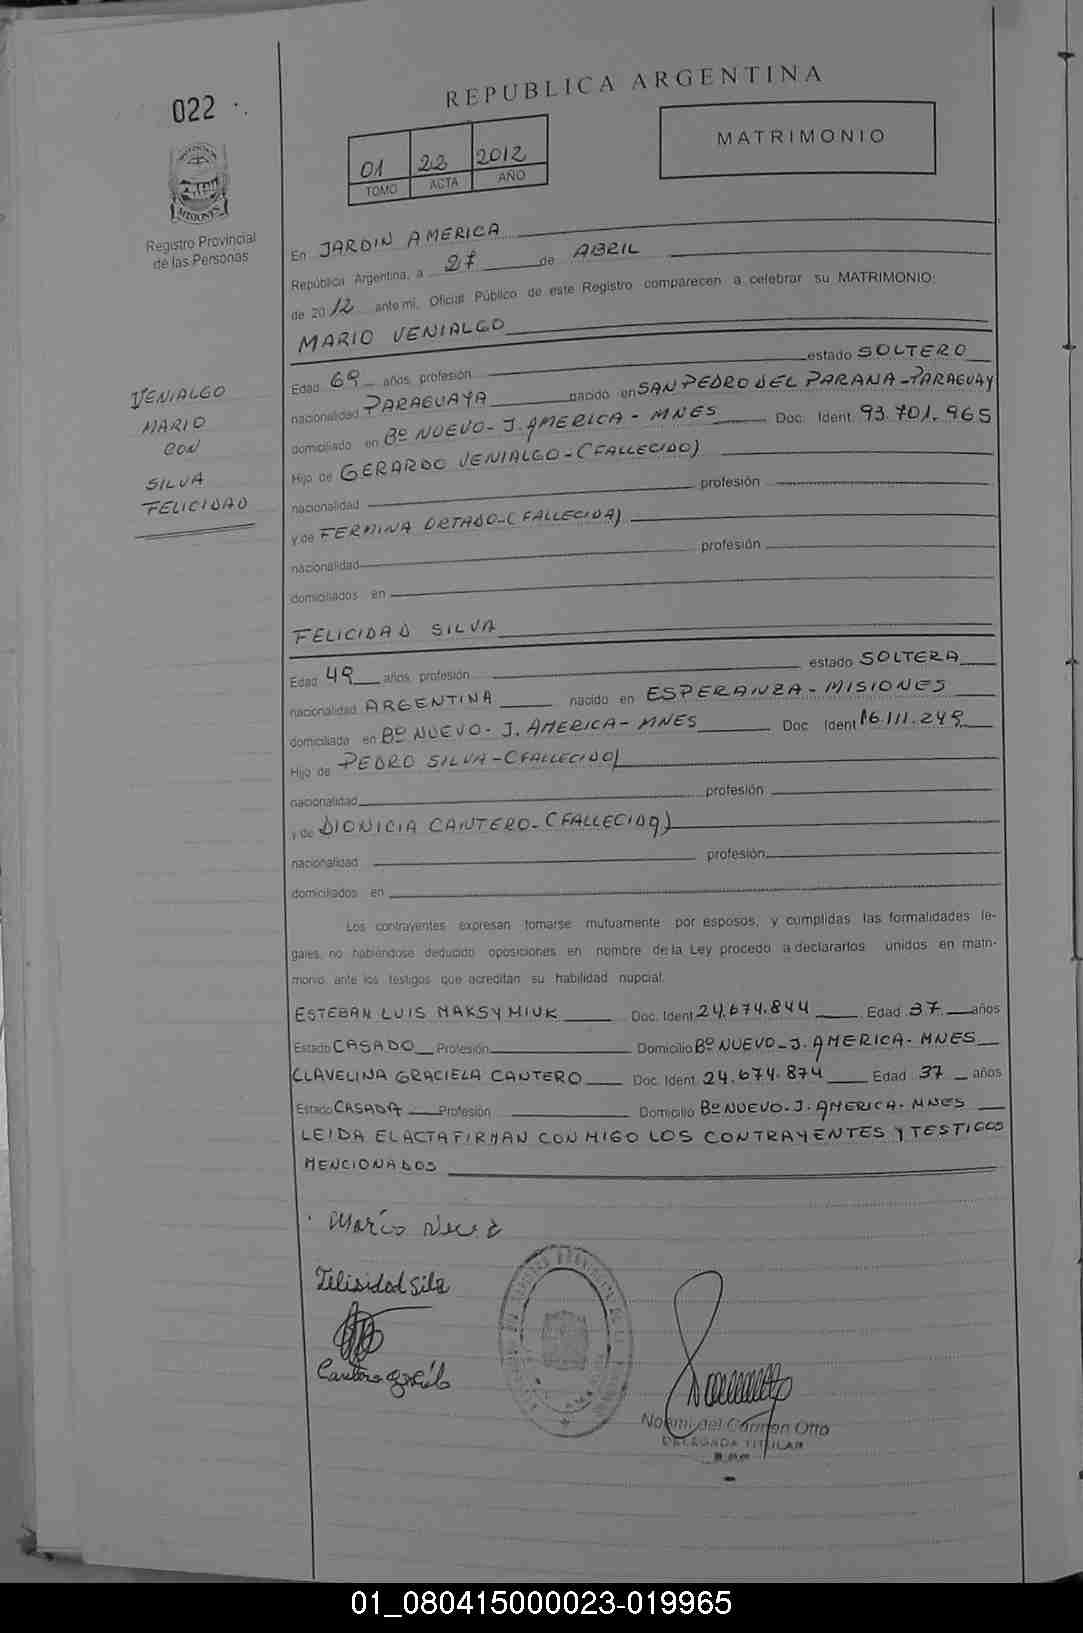 REPUBLICA ARGENTINA
022
MATRIMONIO
01 22 2012
TOMO ACTA AÑO
MISIONES
Registro Provincial
de las Personas
En JARDIN AMERICA
República Argentina, a 27 de ABRIL
de 2012 ante mi, Oficial Público de este Registro comparecen a celebrar su MATRIMONIO:
MARIO VENIALGO
Edad 69 años, profesión estado SOLTERO
nacionalidad PARAGUAYA nacido en SAN PEDRO DEL PARANA-PARAGUAY
domiciliado en Bº NUEVO- J. AMERICA - MNES Doc. Ident. 93.701.965
Hijo de GERARDO VENIALGO-(FALLECIDO)
nacionalidad profesión
y de FERMINA ORTADO-(FALLECIDA)
nacionalidad profesión
domiciliados en
VENIALGO
MARIO
CON
SILVA
FELICIDAD
FELICIDAD SILVA
Edad 49 años, profesión estado SOLTERA
nacionalidad ARGENTINA nacido en ESPERANZA - MISIONES
domiciliada en Bº NUEVO- J. AMERICA- MNES Doc. Ident 16.111.249
Hijo de PEDRO SILVA-(FALLECIDO)
nacionalidad profesión
y de DIONICIA CANTERO-(FALLECIDA)
nacionalidad profesión
domiciliados en
Los contrayentes expresan tomarse mutuamente por esposos, y cumplidas las formalidades le-
gales, no habiéndose deducido oposiciones en nombre de la Ley procedo a declararlos unidos en matri-
monio ante los testigos que acreditan su habilidad nupcial.
ESTEBAN LUIS MAKSYMIUK Doc. Ident. 24.674.844 Edad 37 años
Estado CASADO Profesión Domicilio Bº NUEVO-J. AMERICA- MNES
CLAVELINA GRACIELA CANTERO Doc. Ident. 24.674.874 Edad 37 años
Estado CASADA Profesión Domicilio Bº NUEVO-J. AMERICA- MNES
LEIDA EL ACTA FIRMAN CONMIGO LOS CONTRAYENTES Y TESTIGOS
MENCIONADOS
Mario
Felisidad Silva
Cantero
Noemi del Carmen Otto
DELEGADA TITULAR
01_080415000023-019965